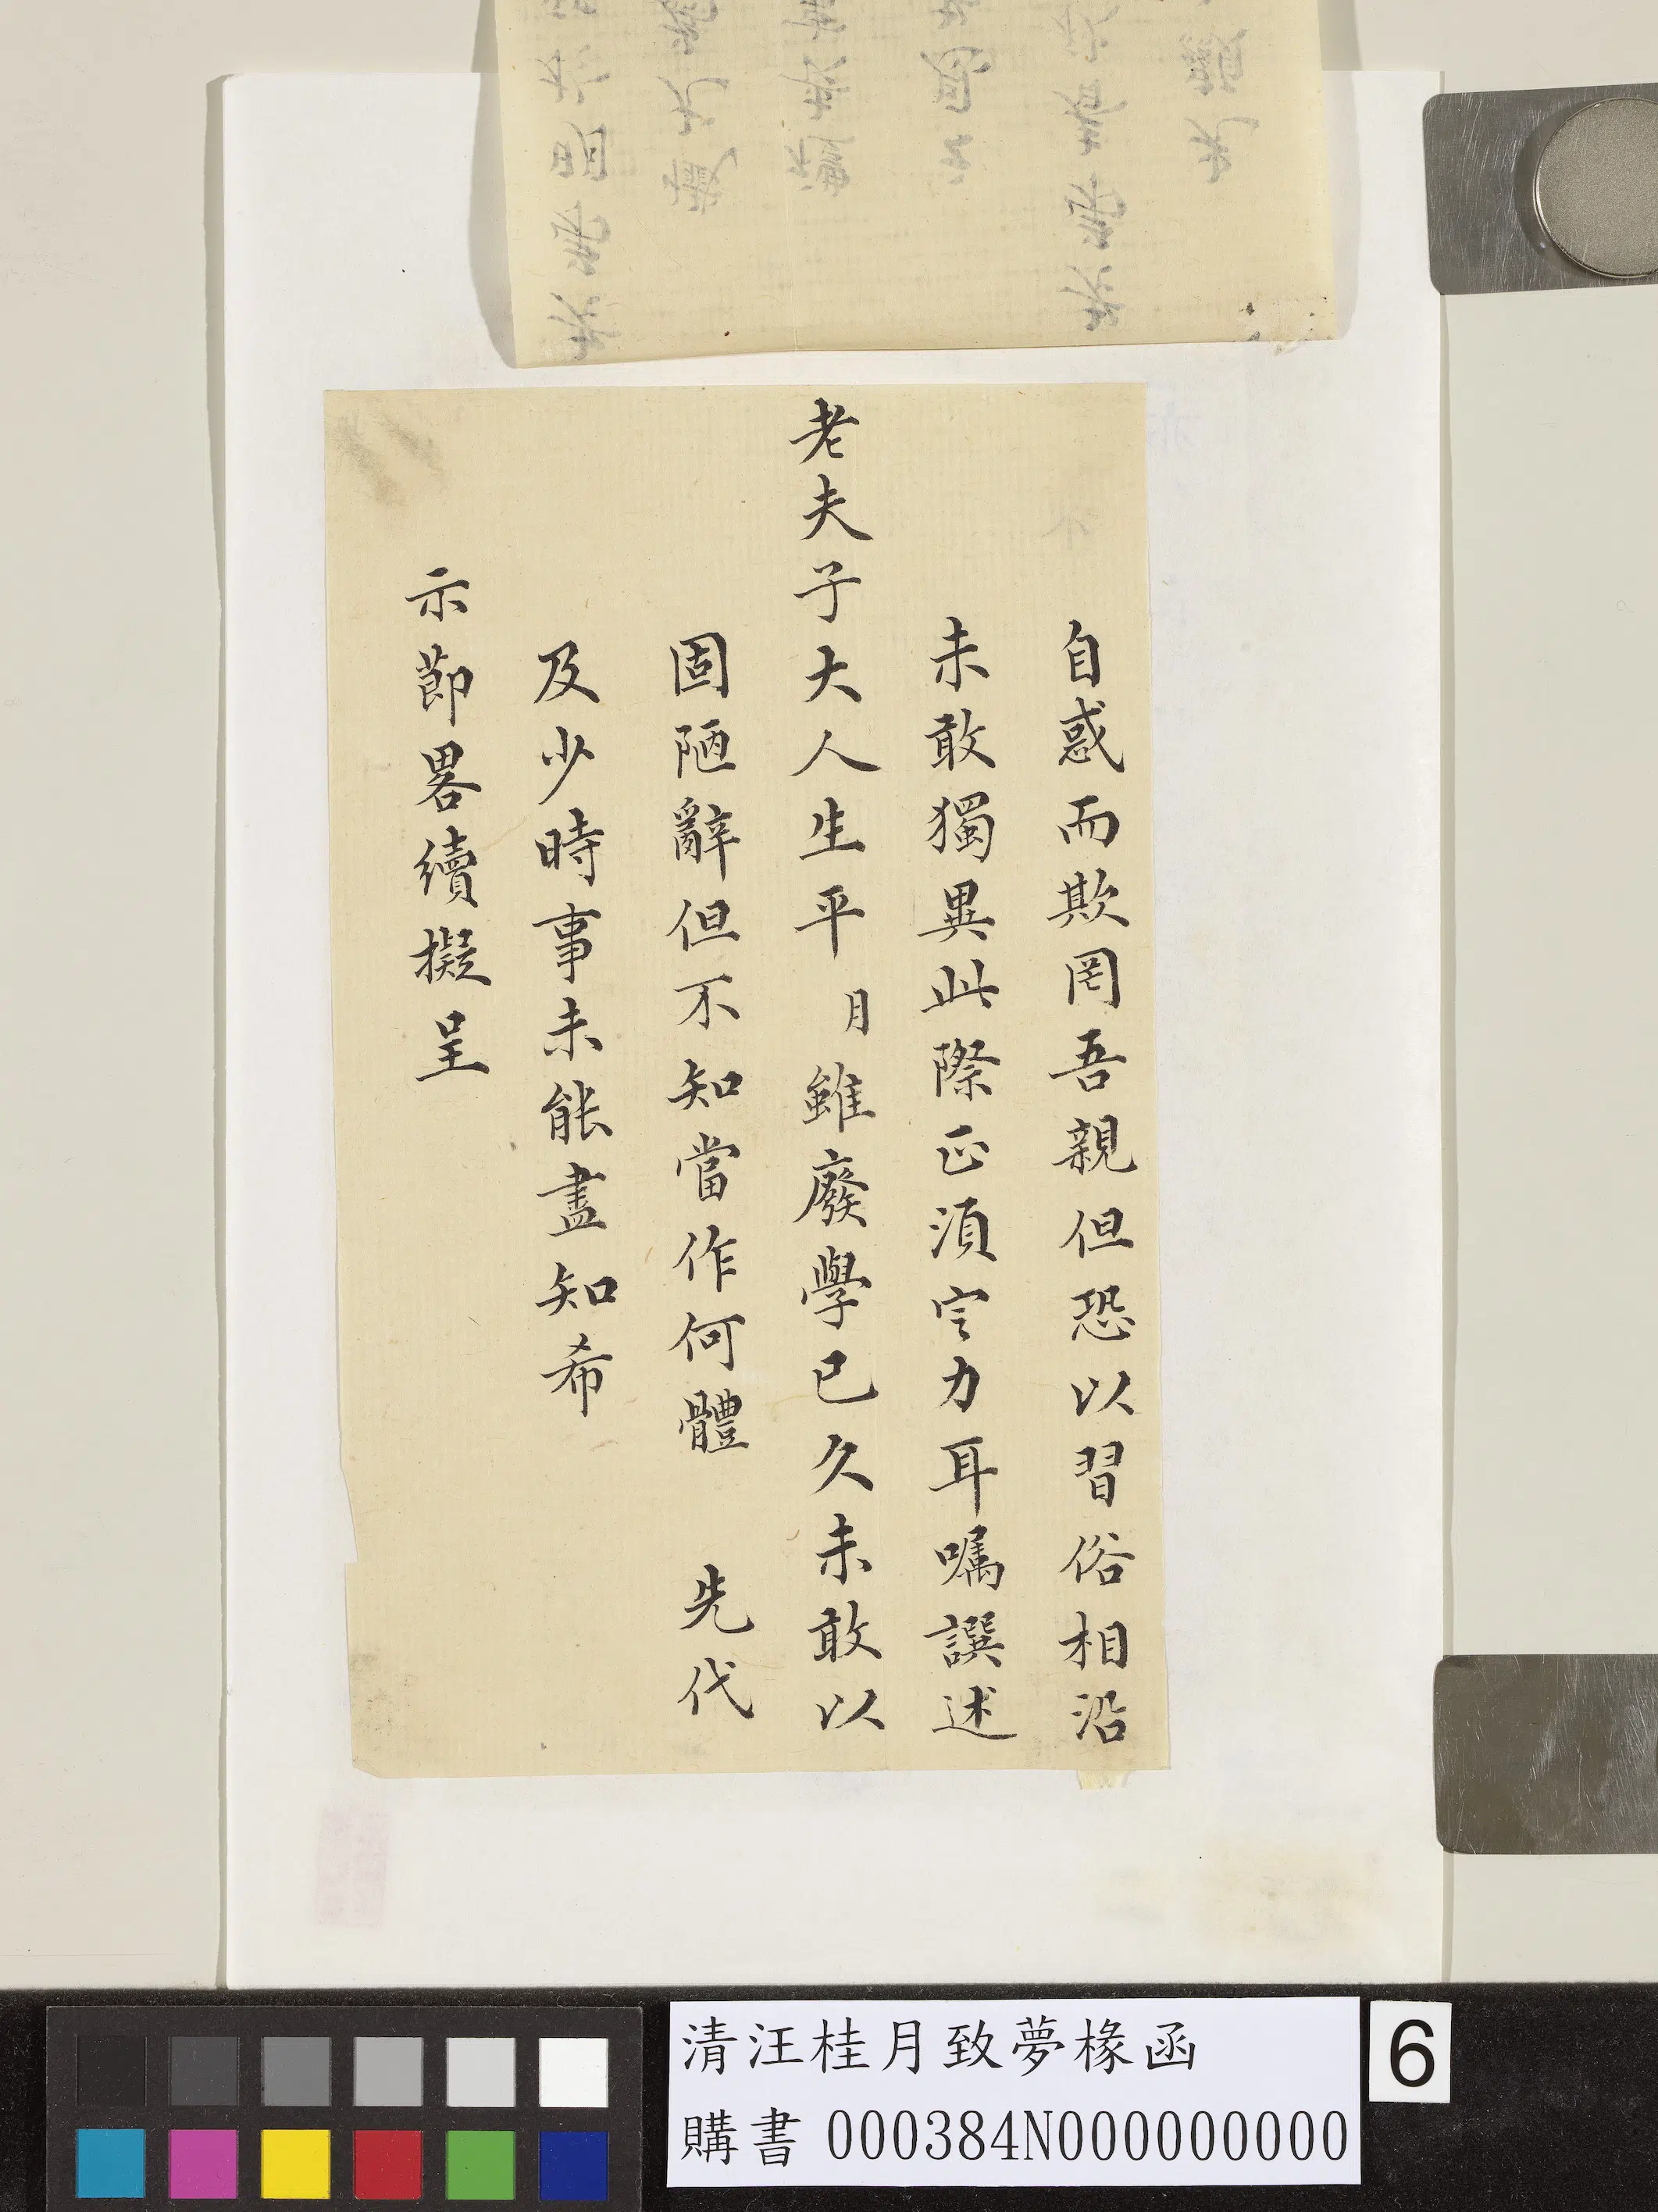 自惑而欺罔吾親但恐以習俗相沿
未敢獨異此際正須定力耳囑譔述
老夫子大人生平月雖廢學已久未敢以
固陋辭但不知當作何體 先代
及少時事未能盡知希
示節畧續擬呈
清汪桂月致夢椽函
購書 000384N000000000
6